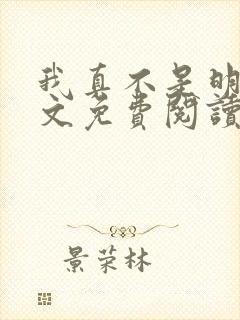 我真不是明
文免费阅读
景荣林